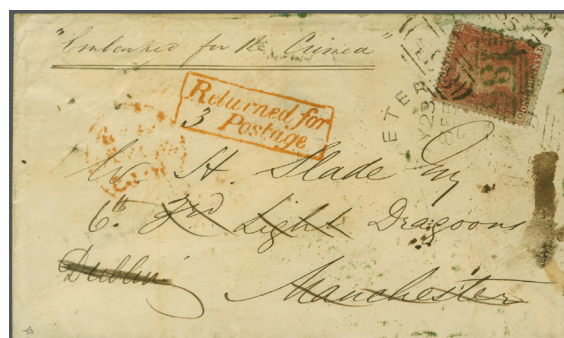 "Embarked for the Crimea"
Returned for
Postage
3
W. H. Slade Esq
6th 3rd Light Dragoons
Dublin
Manchester